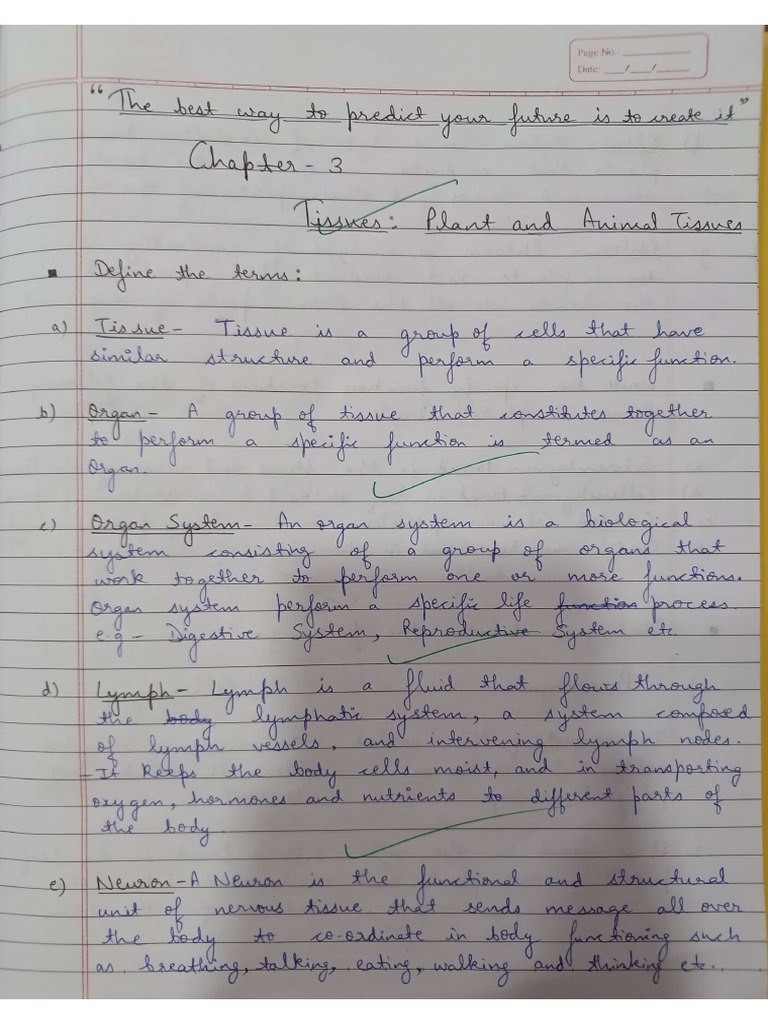 Page No.:
Date: __/__/__
"The best way to predict your future is to create it"
Chapter - 3
Tissues: Plant and Animal Tissues
▪ Define the terms:
a) Tissue - Tissue is a group of cells that have
similar structure and perform a specific function.
b) Organ - A group of tissue that constitutes together
to perform a specific function is termed as an
Organ.
c) Organ System - An organ system is a biological
system consisting of a group of organs that
work together to perform one or more functions.
Organ system perform a specific life function process.
e.g - Digestive System, Reproductive System etc.
d) Lymph - Lymph is a fluid that flows through
the body lymphatic system, a system composed
of lymph vessels, and intervening lymph nodes.
- It keeps the body cells moist, and in transporting
oxygen, hormones and nutrients to different parts of
the body.
e) Neuron - A Neuron is the functional and structural
unit of nervous tissue that sends message all over
the body to co-ordinate in body functioning such
as breathing, talking, eating, walking and thinking etc..